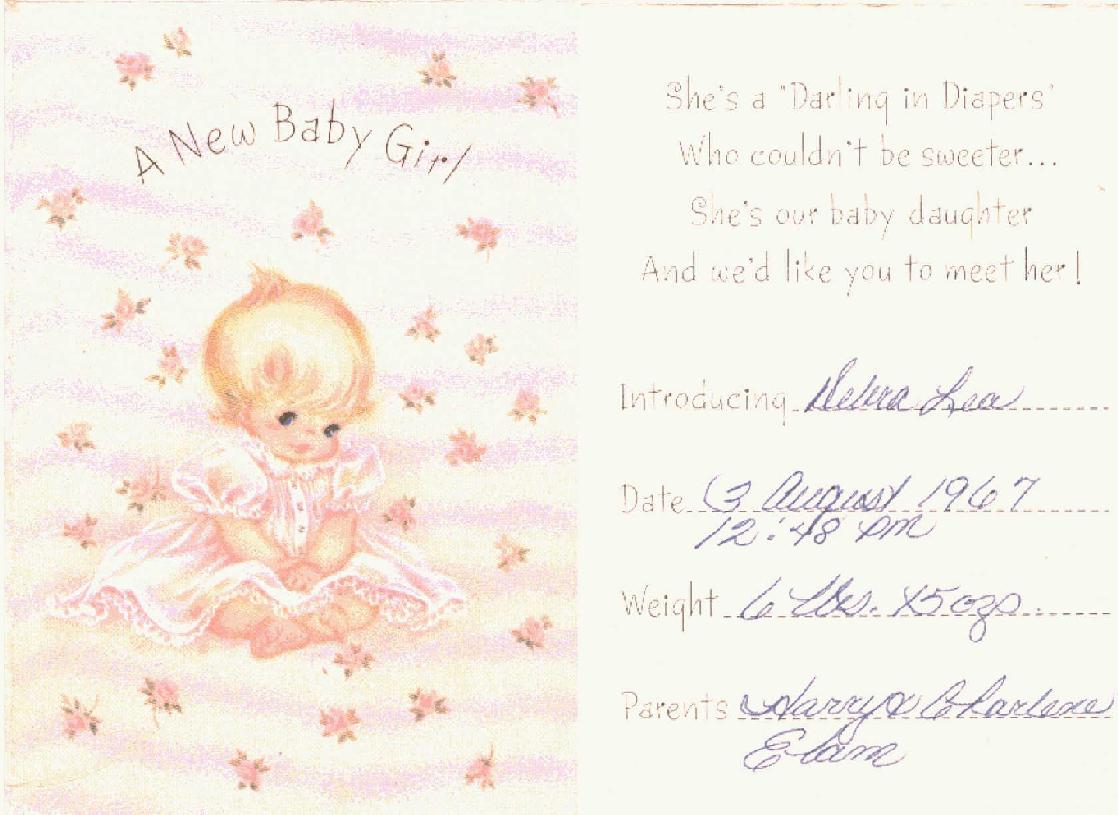 A New Baby Girl
She's a "Darling in Diapers'
Who couldn't be sweeter...
She's our baby daughter
And we'd like you to meet her!
Introducing Debra Lea
Date 3 August 1967
12:48 PM
Weight 6 lbs. 5 ozs.
Parents Harry & Charlene
Elam